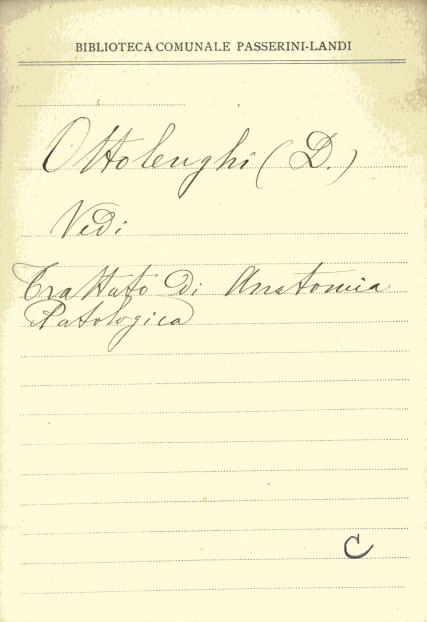 BIBLIOTECA COMUNALE PASSERINI-LANDI
Ottolenghi (D.)
Vedi
Trattato di Anatomia
Patologica
C